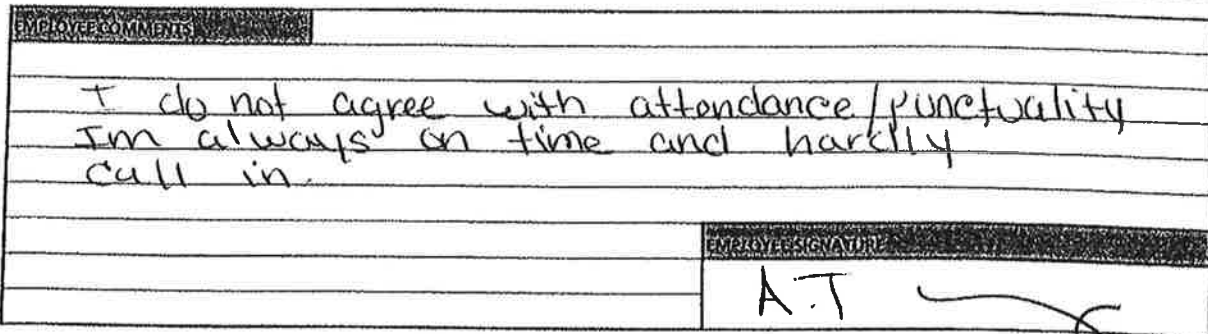 EMPLOYEE COMMENTS
I do not agree with attendance/punctuality
Im always on time and hardly
call in.
EMPLOYEE SIGNATURE
A.T